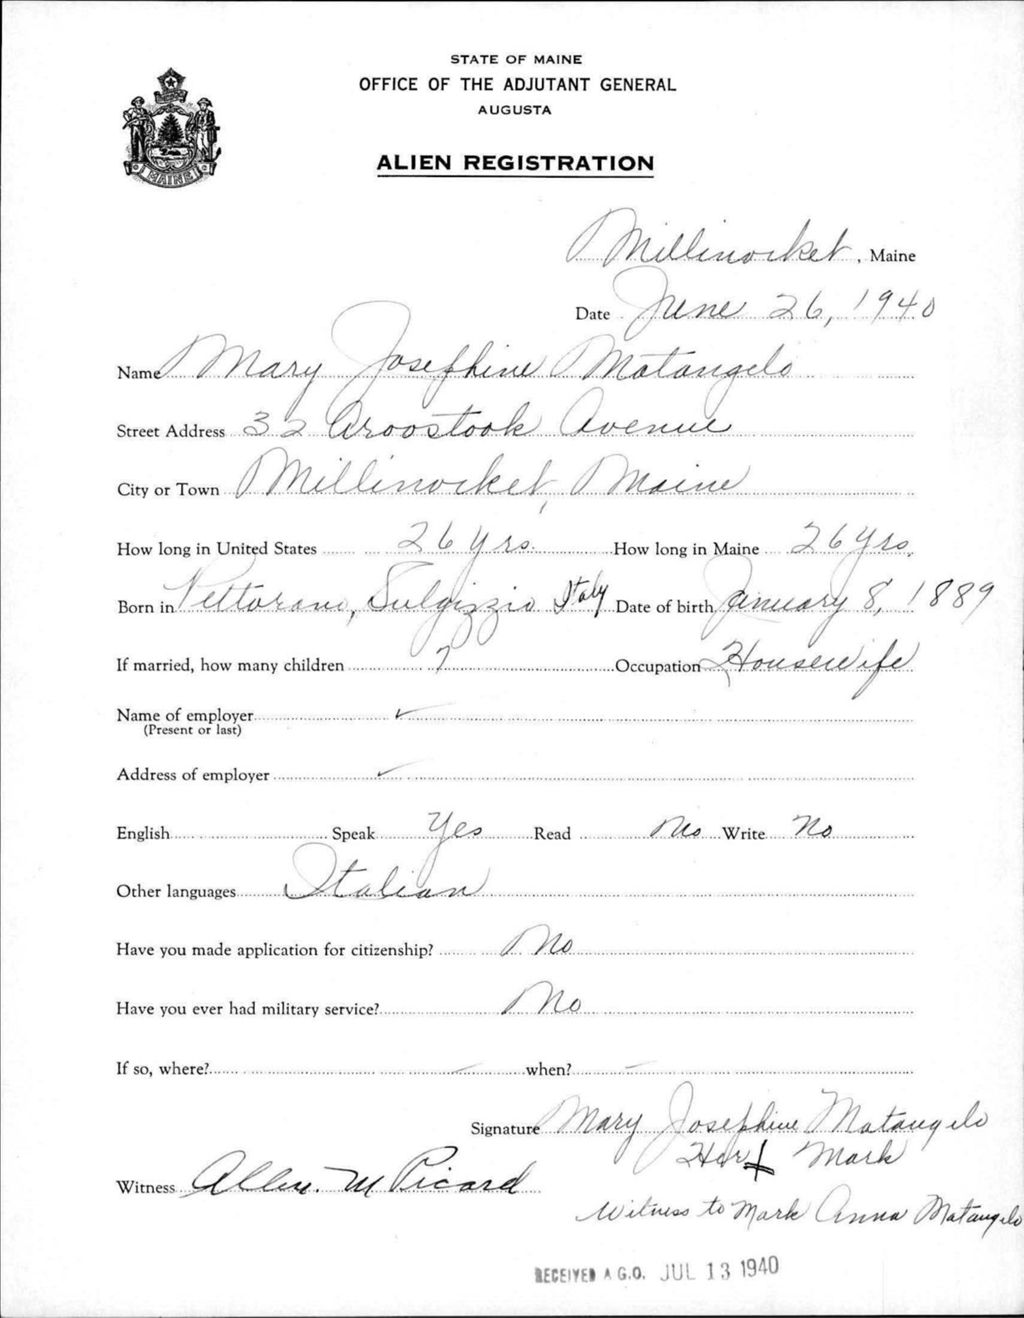 STATE OF MAINE
OFFICE OF THE ADJUTANT GENERAL
AUGUSTA
ALIEN REGISTRATION
MAINE
Millinocket, Maine
Date June 26, 1940
Name Mary Josephine Matangelo
Street Address 32 Aroostook Avenue
City or Town Millinocket, Maine
How long in United States 26 yrs. How long in Maine 26 yrs.
Born in Pettorano, Sulgizzio Italy Date of birth January 8, 1889
If married, how many children 7 Occupation Housewife
Name of employer
(Present or last)
Address of employer
English Speak Yes Read No Write No
Other languages Italian
Have you made application for citizenship? No
Have you ever had military service? No
If so, where? when?
Signature Mary Josephine Matangelo
Her X Mark
Witness Allen. M Picard
Witness to Mark Anna Matangelo
RECEIVED A.G.O. JUL 13 1940